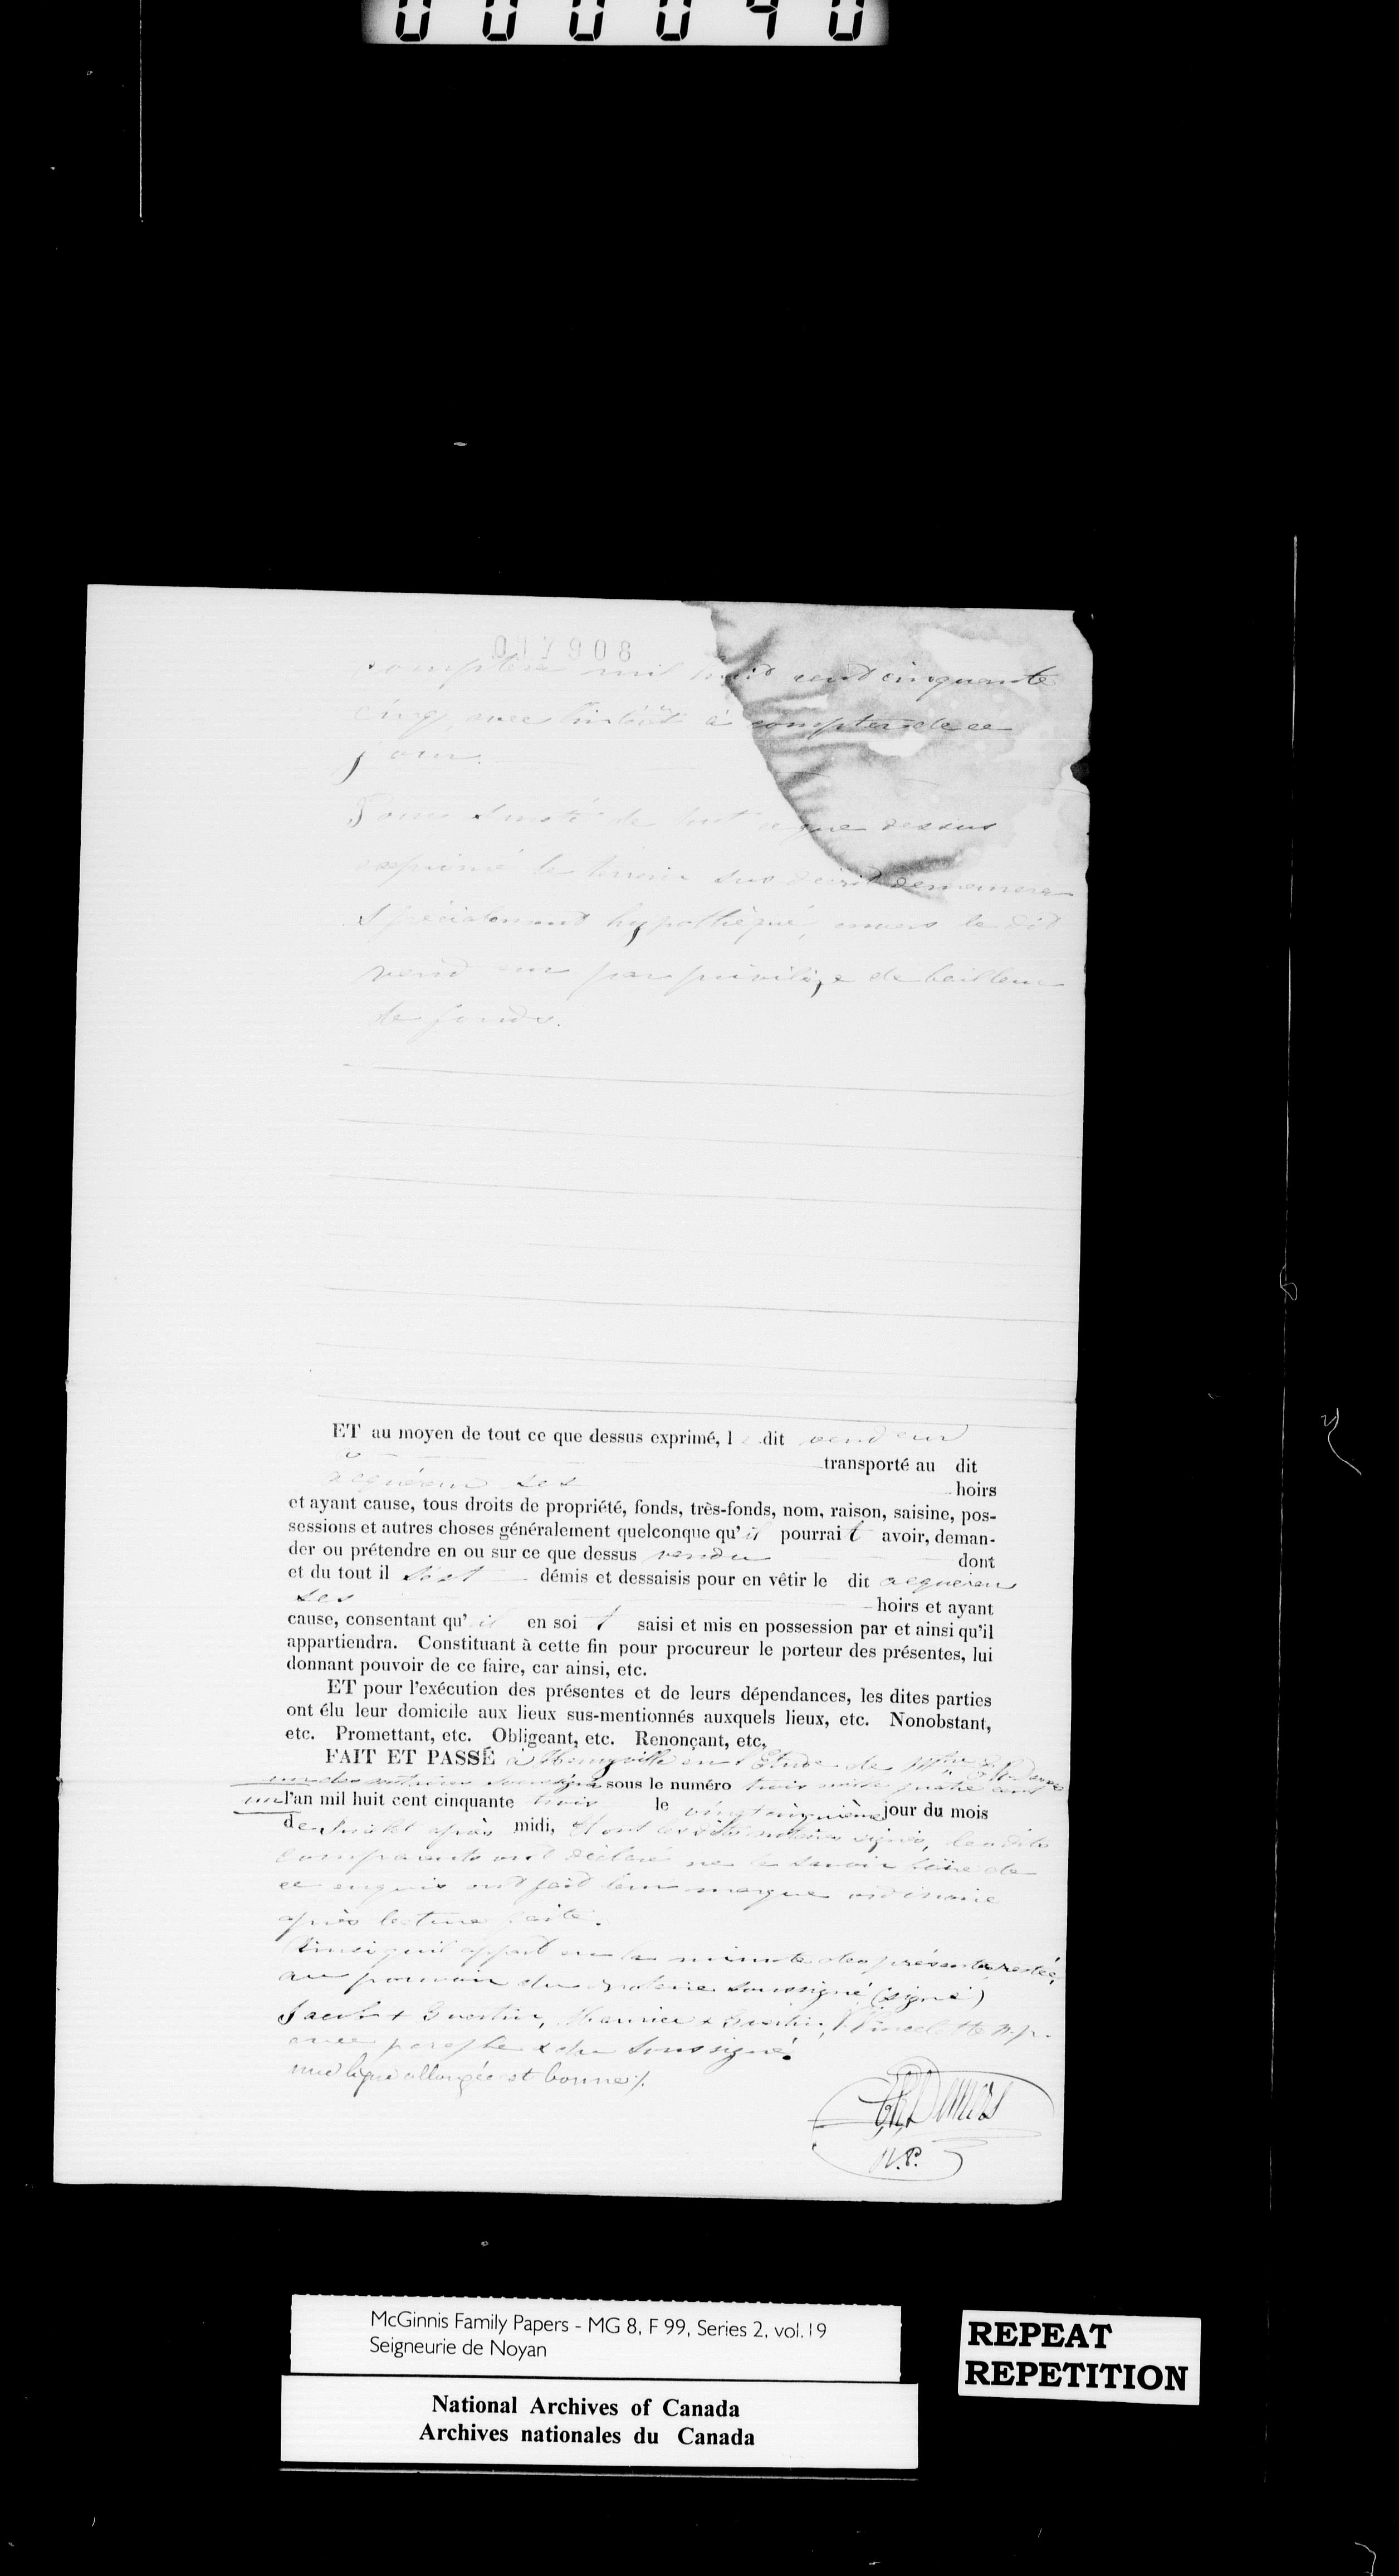 000040
017908
mil huit cent cinquante
cinq, avec intérêt à compter de ce
jour.
Pour sureté de tout ce que dessus
exprimé le terrein sus décrit demeurera
Spécialement hypothéqué, envers le dit
vendeur par privilége de bailleur
de fonds.
ET au moyen de tout ce que dessus exprimé, le dit vendeur
a transporté au dit
acquéreur ses hoirs
et ayant cause, tous droits de propriété, fonds, très-fonds, nom, raison, saisine, pos-
sessions et autres choses généralement quelconque qu'il pourrait avoir, deman-
der ou prétendre en ou sur ce que dessus vendu dont
et du tout il s'est démis et dessaisis pour en vêtir le dit acquéreur
ses hoirs et ayant
cause, consentant qu'il en soit saisi et mis en possession par et ainsi qu'il
appartiendra. Constituant à cette fin pour procureur le porteur des présentes, lui
donnant pouvoir de ce faire, car ainsi, etc.
ET pour l'exécution des présentes et de leurs dépendances, les dites parties
ont élu leur domicile aux lieux sus-mentionnés auxquels lieux, etc. Nonobstant,
etc. Promettant, etc. Obligeant, etc. Renonçant, etc,
FAIT ET PASSÉ à Henryville en l'Etude de Mtre E. R. Demers
un des notaires soussignés sous le numéro trois mille quatre cent
un l'an mil huit cent cinquante trois le vingt cinquième jour du mois
de Juillet après midi, Et ont les dits notaires signés, les dits
comparants ont déclaré ne le savoir faire de
ce enquis ont fait leur marque ordinaire
après lecture faite.
Ainsi qu'il appert en la minute des présentes restée
au pouvoir du notaire soussigné (signé)
Jacob + Guertin, + Guertin, Pincelotte N.P.
avec paraphe & du soussigné.
une ligne allongée est bonne /.
E.R. Demers
N.P.
McGinnis Family Papers - MG 8, F 99, Series 2, vol. 19
Seigneurie de Noyan
National Archives of Canada
Archives nationales du Canada
REPEAT
REPETITION